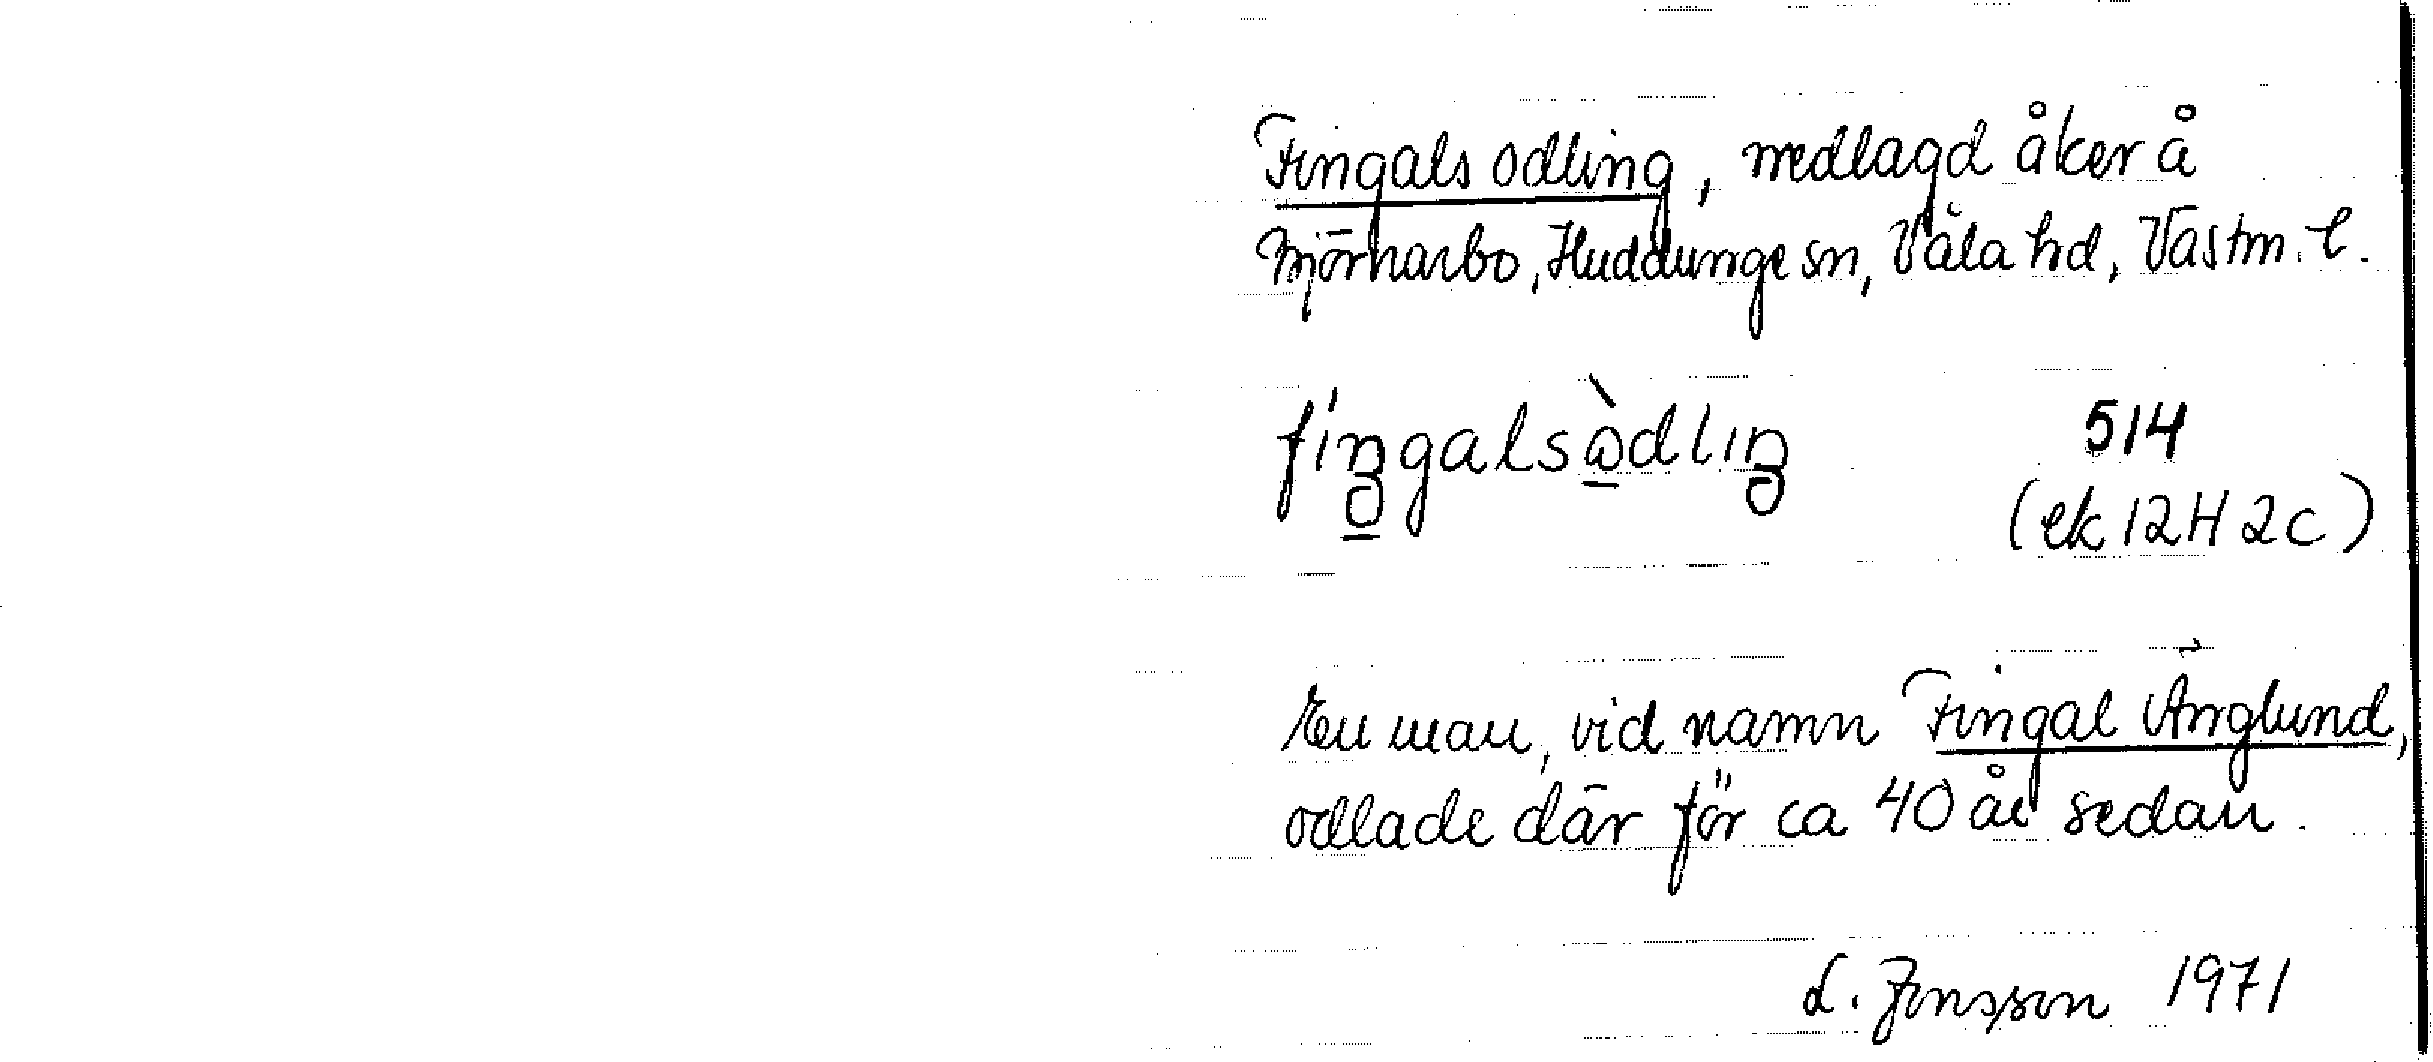 Fingals odling, nedlagd åker å
Björnarbo, Huddunge sn, Våla hd, Västm. l.
fíŋgalsòdliŋ 514
(ek 12H 2c)
En man, vid namn Fingal Änglund,
odlade där för ca 40 år sedan.
L. Jonsson 1971